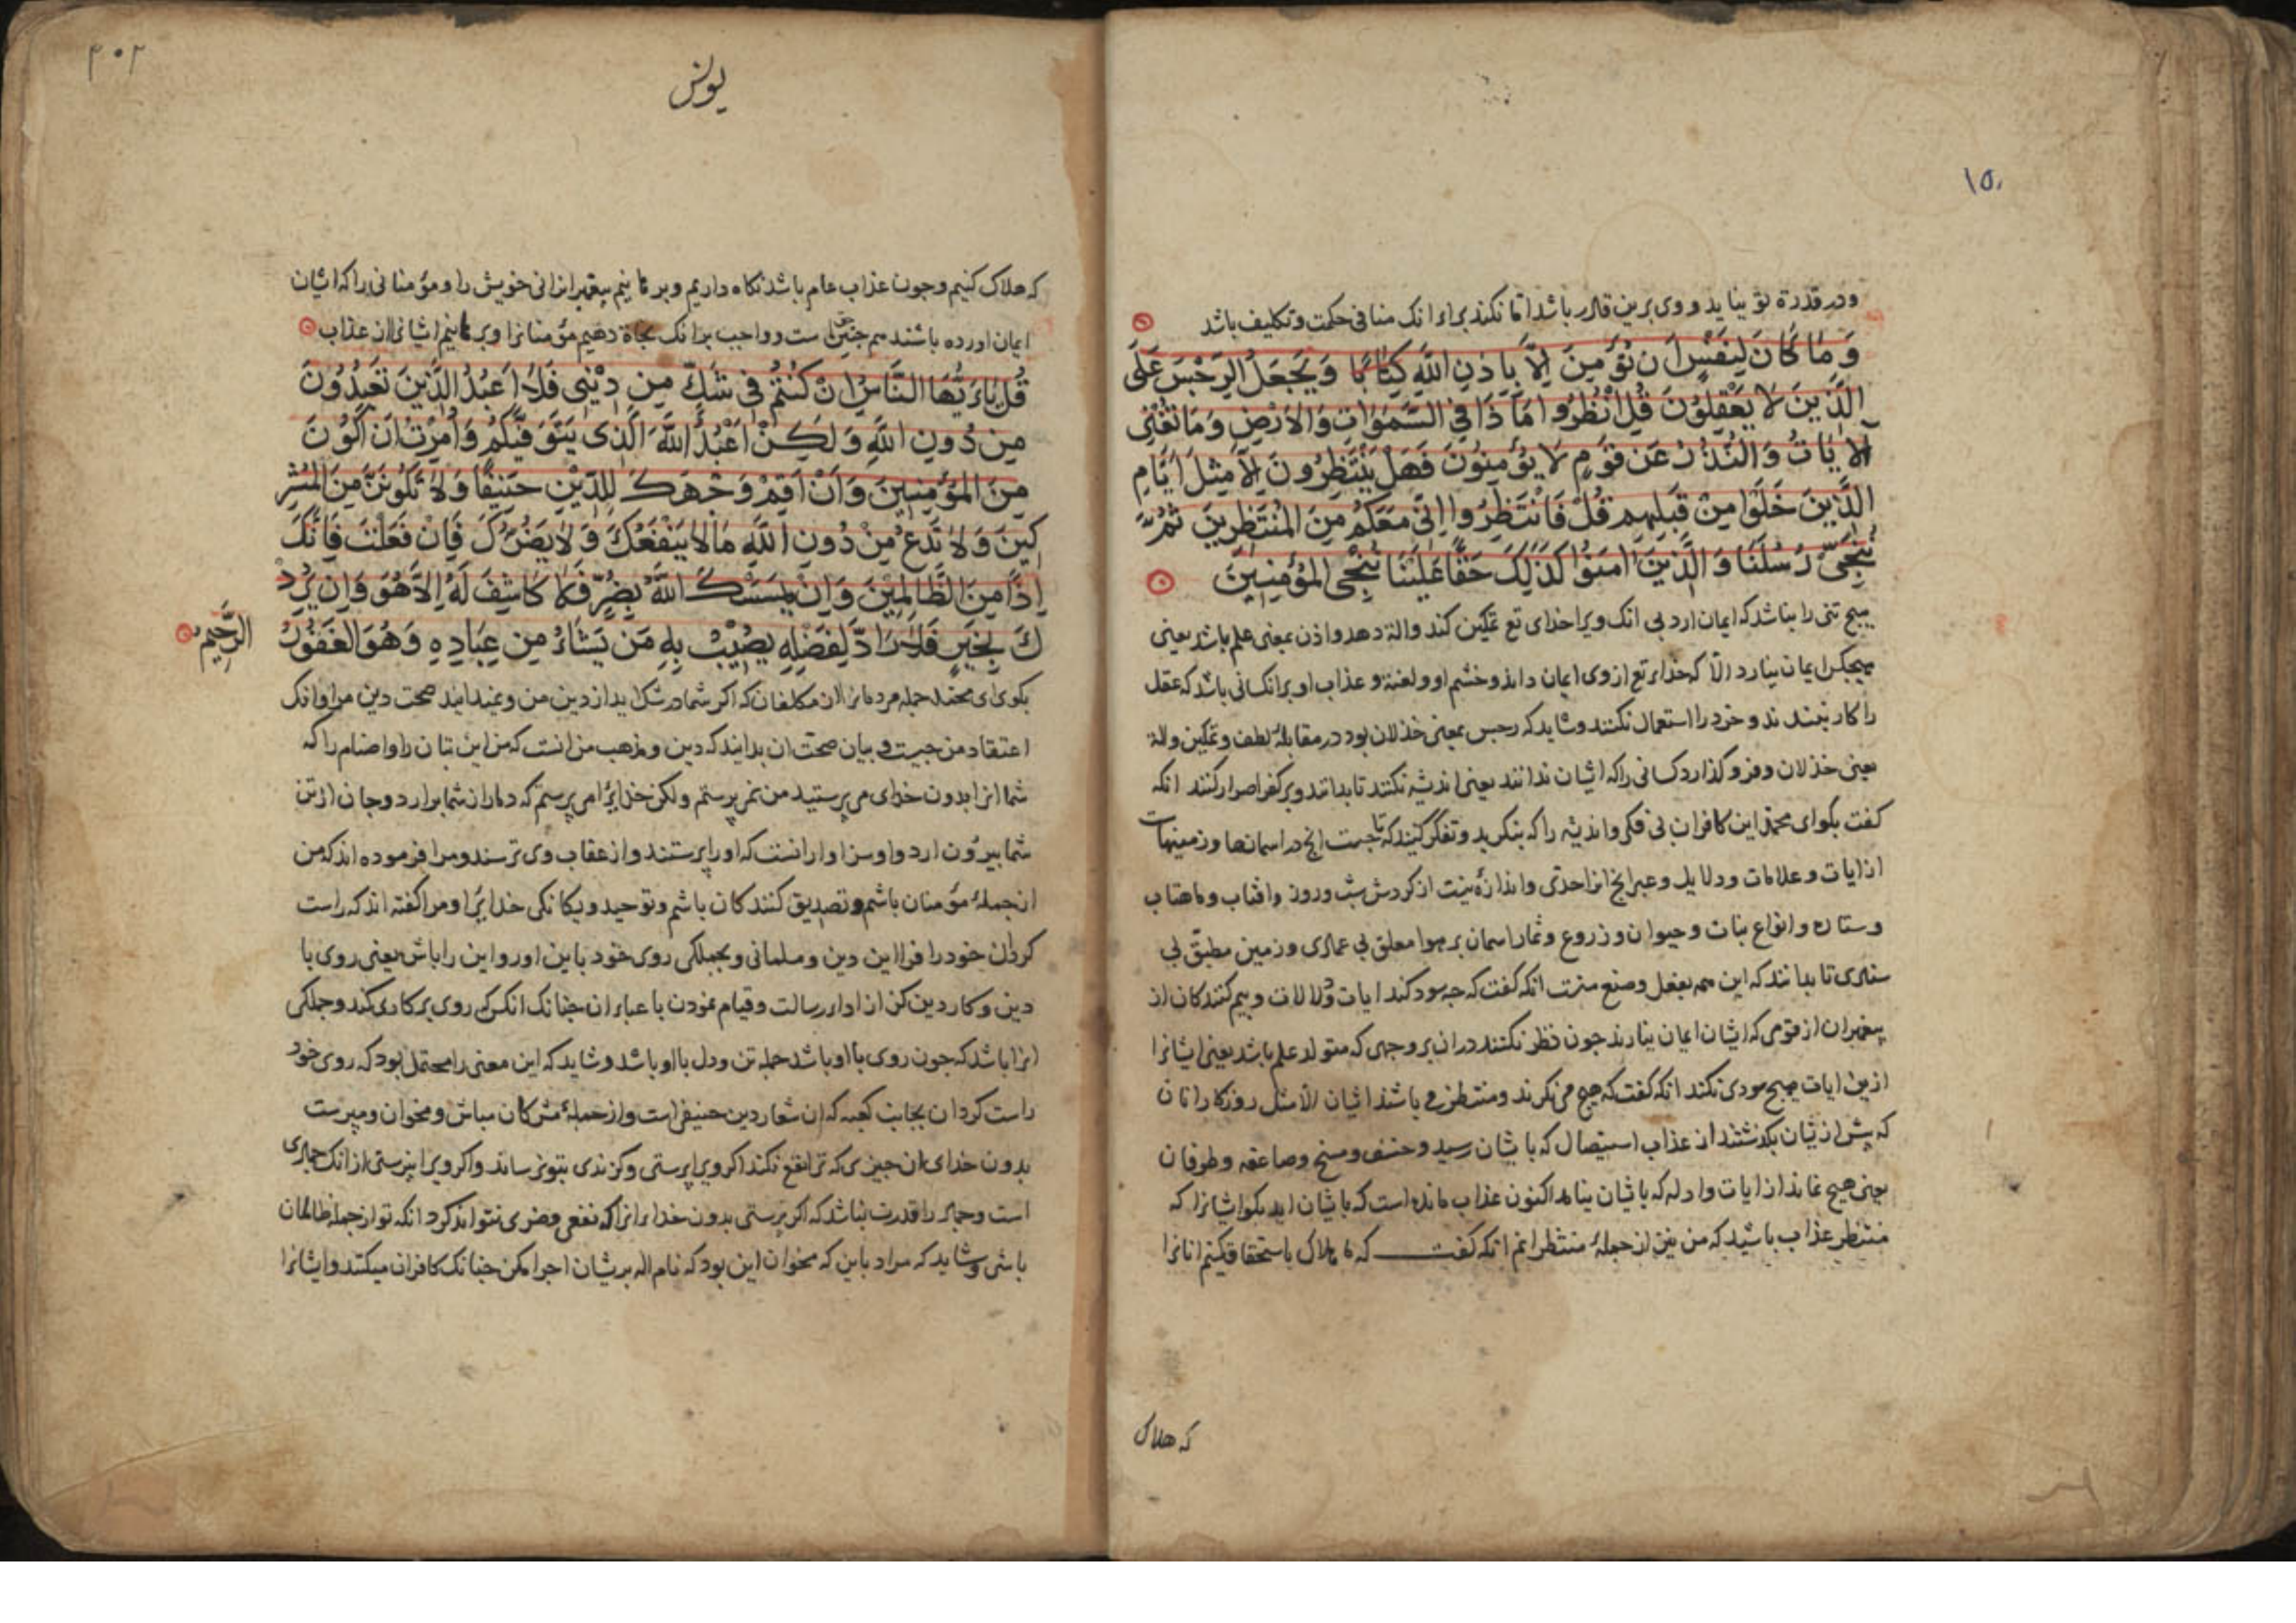 ۱۵۰
و در قدرة تو بیناید و وی برین قادر باشد اما نکند برای انک منافی حکمت و تکلیف باشد
وَمَا كَانَ لِنَفْسٍ اَن تُؤْمِنَ اِلَّا بِاِذْنِ اللَّهِ كِتَابًا وَيَجْعَلُ الرِّجْسَ عَلَى
الَّذِينَ لَا يَعْقِلُونَ قُلِ انْظُرُوا مَاذَا فِي السَّمَوَاتِ وَالْاَرْضِ وَمَا تُغْنِي
الْايَاتُ وَالنُّذُرُ عَن قَوْمٍ لَا يُؤْمِنُونَ فَهَلْ يَنْتَظِرُونَ اِلَّا مِثْلَ اَيَّامِ
الَّذِينَ خَلَوْا مِنْ قَبْلِهِم قُلْ فَانْتَظِرُوا اِنِّي مَعَكُمْ مِنَ الْمُنْتَظِرِينَ ثُمَّ
نُنَجِّي رُسُلَنَا وَالَّذِينَ امَنُوا كَذَلِكَ حَقًّا عَلَيْنَا نُنْجِي الْمُؤْمِنِينَ
هیچ تنی را نباشد که ایمان ارد بی انک ویرا خدای تع تمکین کند والة دهد واذن بمعنی علم باشد یعنی
هیچکس ایمان نیارد الا که خدای تع از وی ایمان داند و خشم او و لعنة و عذاب او بر انکسانی باشد که عقل
را کار نبندند و خرد را استعمال نکنند و شاید که رجس بمعنی خذلان بود در مقابلۀ لطف و تمکین والة
یعنی خذلان و فرو گذارد کسانی را که ایشان ندانند یعنی اندیشه نکنند تا بدانند و بر کفر اصرار کنند انکه
کفت بکو ای محمد این کافران بی فکر و اندیشه را که بنکرید و تفکر کنید که تا چیست انچ در اسمانها و زمینهاست
از ایات و علامات و دلایل و عبر انچ انرا حدی و اندازۀ نیست از کردش شب و روز و افتاب و ماهتاب
و ستاره و انواع نبات و حیوان و زروع و ثمار اسمان بر هوا معلق بی عمادی و زمین مطبق بی
سنادی تا بدانند که این همه بفعل و صنع منست انکه کفت که چه سود کند ایات و دلالات و بیم کنندکان از
پیغمبران از قومی که ایشان ایمان نیارند چون نظر نکنند در ان بر وجهی که متولد علم باشد یعنی ایشانرا
ازین ایات هیچ سودی نکند انکه کفت که هیچ می نکرند و منتظر می باشند ایشان الا مثل روزکار انان
که پیش از یشان بکذشتند از عذاب استیصال که باشان رسید و خسف و مسخ و صاعقه و طوفان
یعنی هیچ نماند از ایات و ادله که باشان نیامد اکنون عذاب مانده است که باشان اید بکو ایشانرا که
منتظر عذاب باشید که من نیز از جملۀ منتظرانم انکه کفت که ما هلاک باستحقاق کنیم انانرا
که هلاک
۳۰۲
یونس
که هلاک کنیم و چون عذاب عام باشد نکاه داریم و برهانیم پیغمبرانی خویش را و مؤمنانی را که ایشان
ایمان اورده باشند هم چنین حق است و واجب بر انک نجاة دهیم مؤمنانرا و برهانیم ایشانرا از عذاب
قُلْ يَا اَيُّهَا النَّاسُ اِنْ كُنْتُمْ فِي شَكٍّ مِن دِينِي فَلَا اَعْبُدُ الَّذِينَ تَعْبُدُونَ
مِن دُونِ اللَّهِ وَلَكِنْ اَعْبُدُ اللَّهَ الَّذِى يَتَوَفَّيكُمْ وَاُمِرْتُ اَنْ اَكُونَ
مِنَ الْمُؤْمِنِينَ وَاَنْ اَقِمْ وَجْهَكَ لِلدِّينِ حَنِيفًا وَلَا تَكُونَنَّ مِنَ الْمُشْرِ
كِينَ وَلَا تَدْعُ مِنْ دُونِ اللَّهِ مَا لَا يَنْفَعُكَ وَلَا يَضُرُّكَ فَاِنْ فَعَلْتَ فَاِنَّكَ
اِذًا مِنَ الظَّالِمِينَ وَاِنْ يَمْسَسْكَ اللَّهُ بِضُرٍّ فَلَا كَاشِفَ لَهُ اِلَّا هُوَ وَاِن يُرِدْ
كَ بِخَيْرٍ فَلَا رَادَّ لِفَضْلِهِ يُصِيبُ بِهِ مَن يَشَاءُ مِن عِبَادِهِ وَهُوَ الْغَفُورُ الرَّحِيمُ
بکوی ای محمد جمله مردمانرا از مکلفان که اکر شما در شک اید از دین من و نمیدانید صحت دین مرا و انک
اعتقاد من چیست و بیان صحت ان بدانید که دین و مذهب من انست که من این بتان را و اصنام را که
شما انرا بدون خدای می پرستید من نمی پرستم ولکن خدایرا می پرستم که دمار از شما برارد و جان از تن
شما بیرون ارد و او سزاوار انست که او را پرستند و از عقاب وی ترسند و مرا فرموده اند که من
از جملۀ مؤمنان باشم و تصدیق کنندکان باشم و توحید و یکانکی خدایرا و مرا کفته اند که راست
کردان خود را فرا این دین و مسلمانی و بجملکی روی خود باین اور و این را باش یعنی روی با
دین و کار دین کن از ادای رسالت و قیام نمودن با عبای ان چنانک انکس که روی بر کاری کند و جملکی
انرا باشد که چون روی با او باشد جمله تن و دل با او باشد و شاید که این معنی را محتمل بود که روی خود
راست کردان بجانب کعبه که ان شعار دین حنیفی است و از جملۀ مشرکان مباش و مخوان و مپرست
بدون خدای ان چیزی که ترا نفع نکند اکر ویرا پرستی و کزندی بتو نرساند و اکر ویرا نپرستی از انک جمادی
است و جماد را قدرت نباشد که اکر پرستی بدون خدای انرا که نفعی و ضری نتواند کرد انکه تو از جمله ظالمان
باشی و شاید که مراد باین که مخوان این بود که نام اله بریشان اجرا مکن چنانک کافران میکنند و ایشانرا